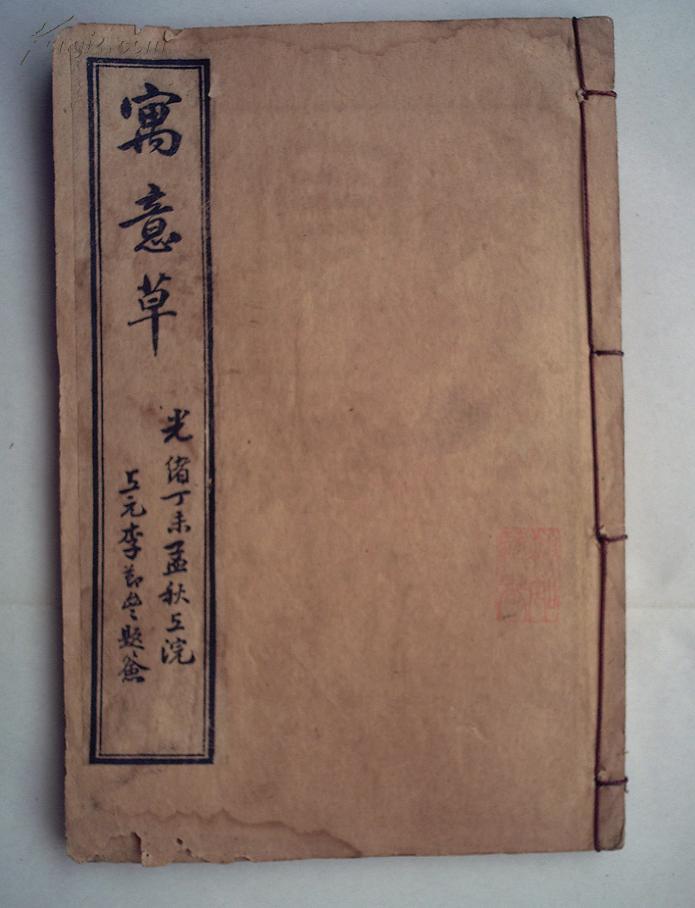 寓意草
光绪丁未孟秋上浣
上元李節㞷題簽